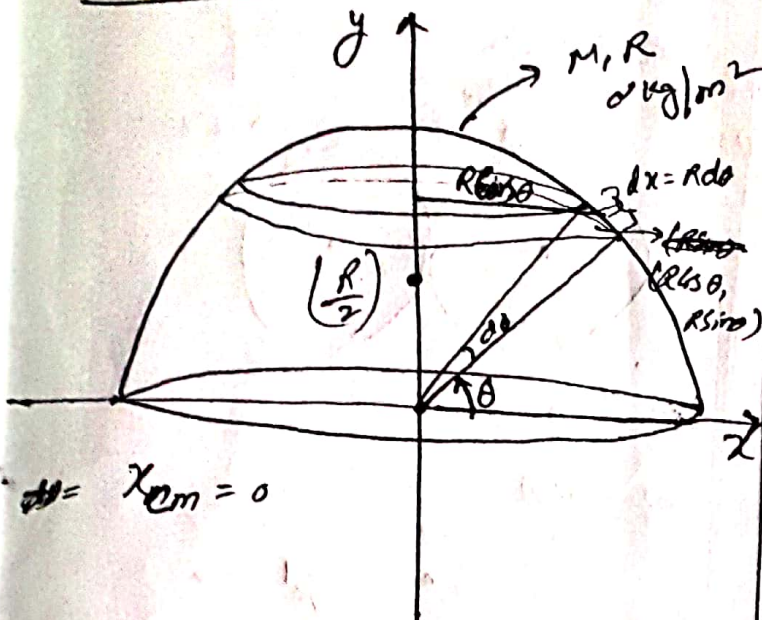 y
M, R
σ kg/m²
Rcosθ
dx = Rdθ
(Rcosθ,
Rsinθ)
(R/2)
dθ
θ
x
xcm = 0